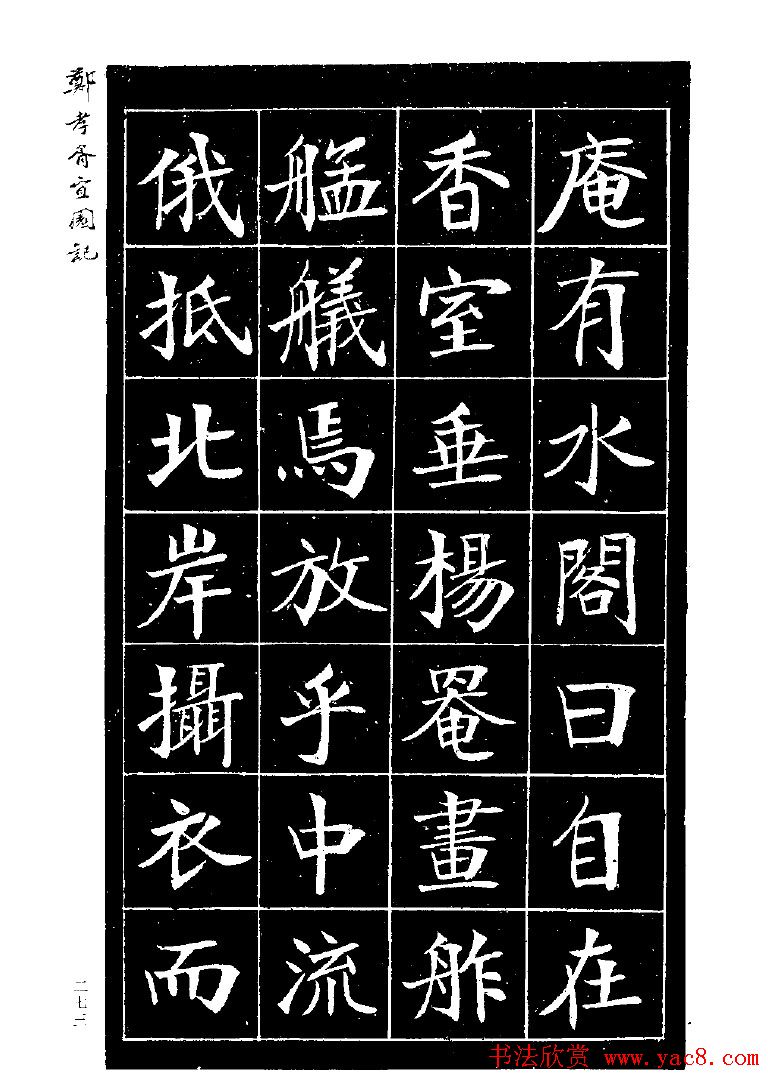 庵有水閣曰自在
香室垂楊罨畫舴
艋艤焉放乎中流
俄抵北岸攝衣而
鄭孝胥宜園記
书法欣赏 www.yac8.com